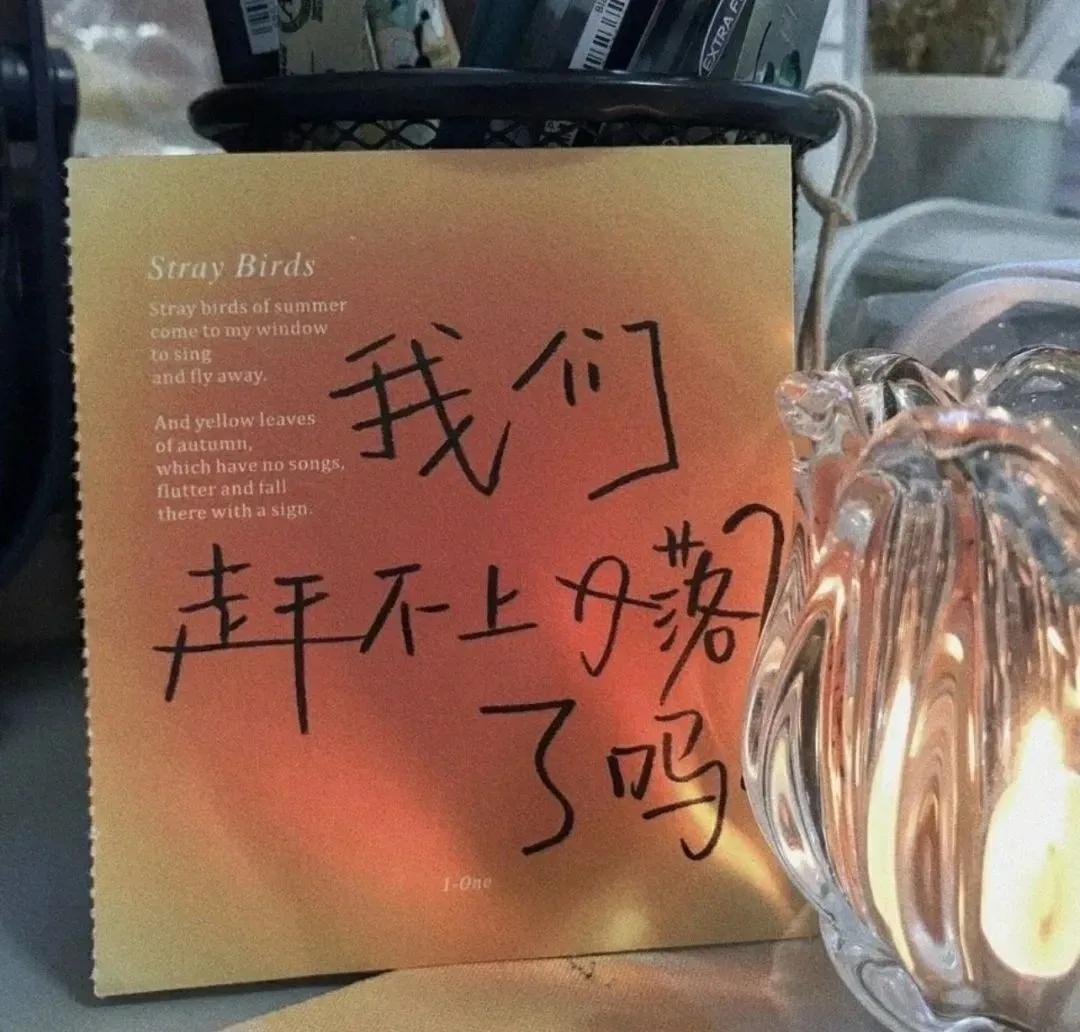 EXTRA F
Stray Birds
Stray birds of summer
come to my window
to sing
and fly away.
And yellow leaves
of autumn,
which have no songs,
flutter and fall
there with a sign.
我们
赶不上日落
了吗
1-One